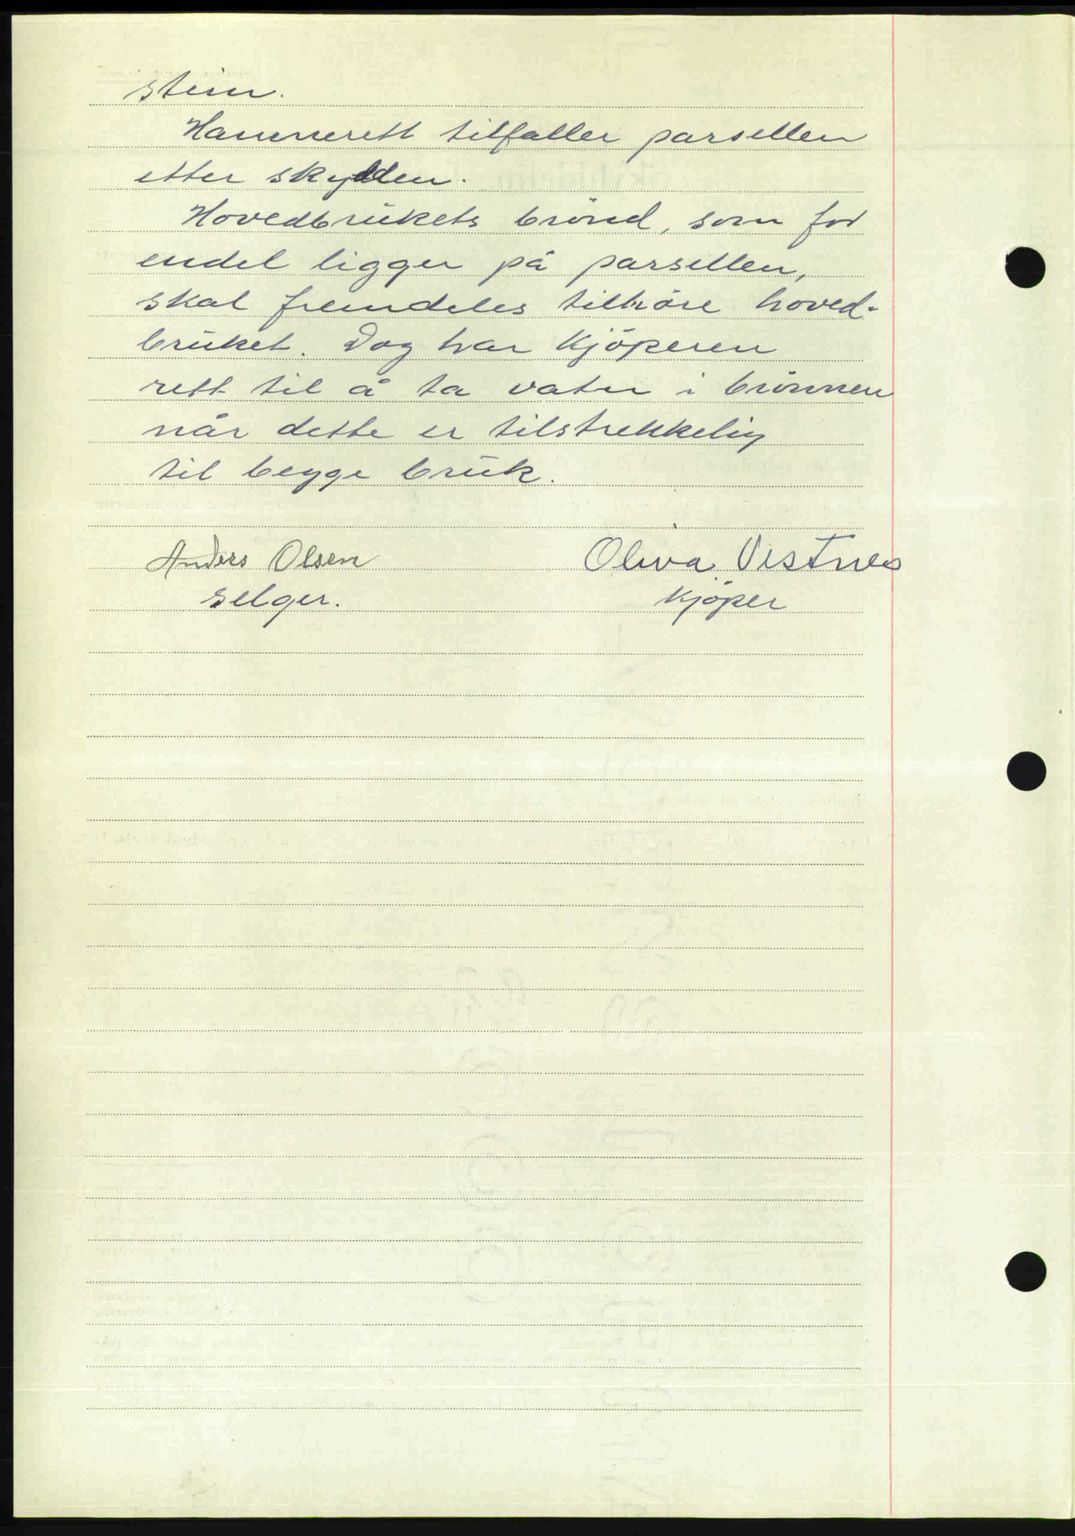 stein.
Hamnerett tilfaller parsellen
etter skylden.
Hovedbrukets brönd, som for
endel ligger på parsellen,
skal fremdeles tilhöre hoved-
bruket. Dog har kjöperen
rett til å ta vatn i brönnen
når dette er tilstrekkelig
til begge bruk.
Anders Olsen
Oliva Vestnes
selger.
kjöper